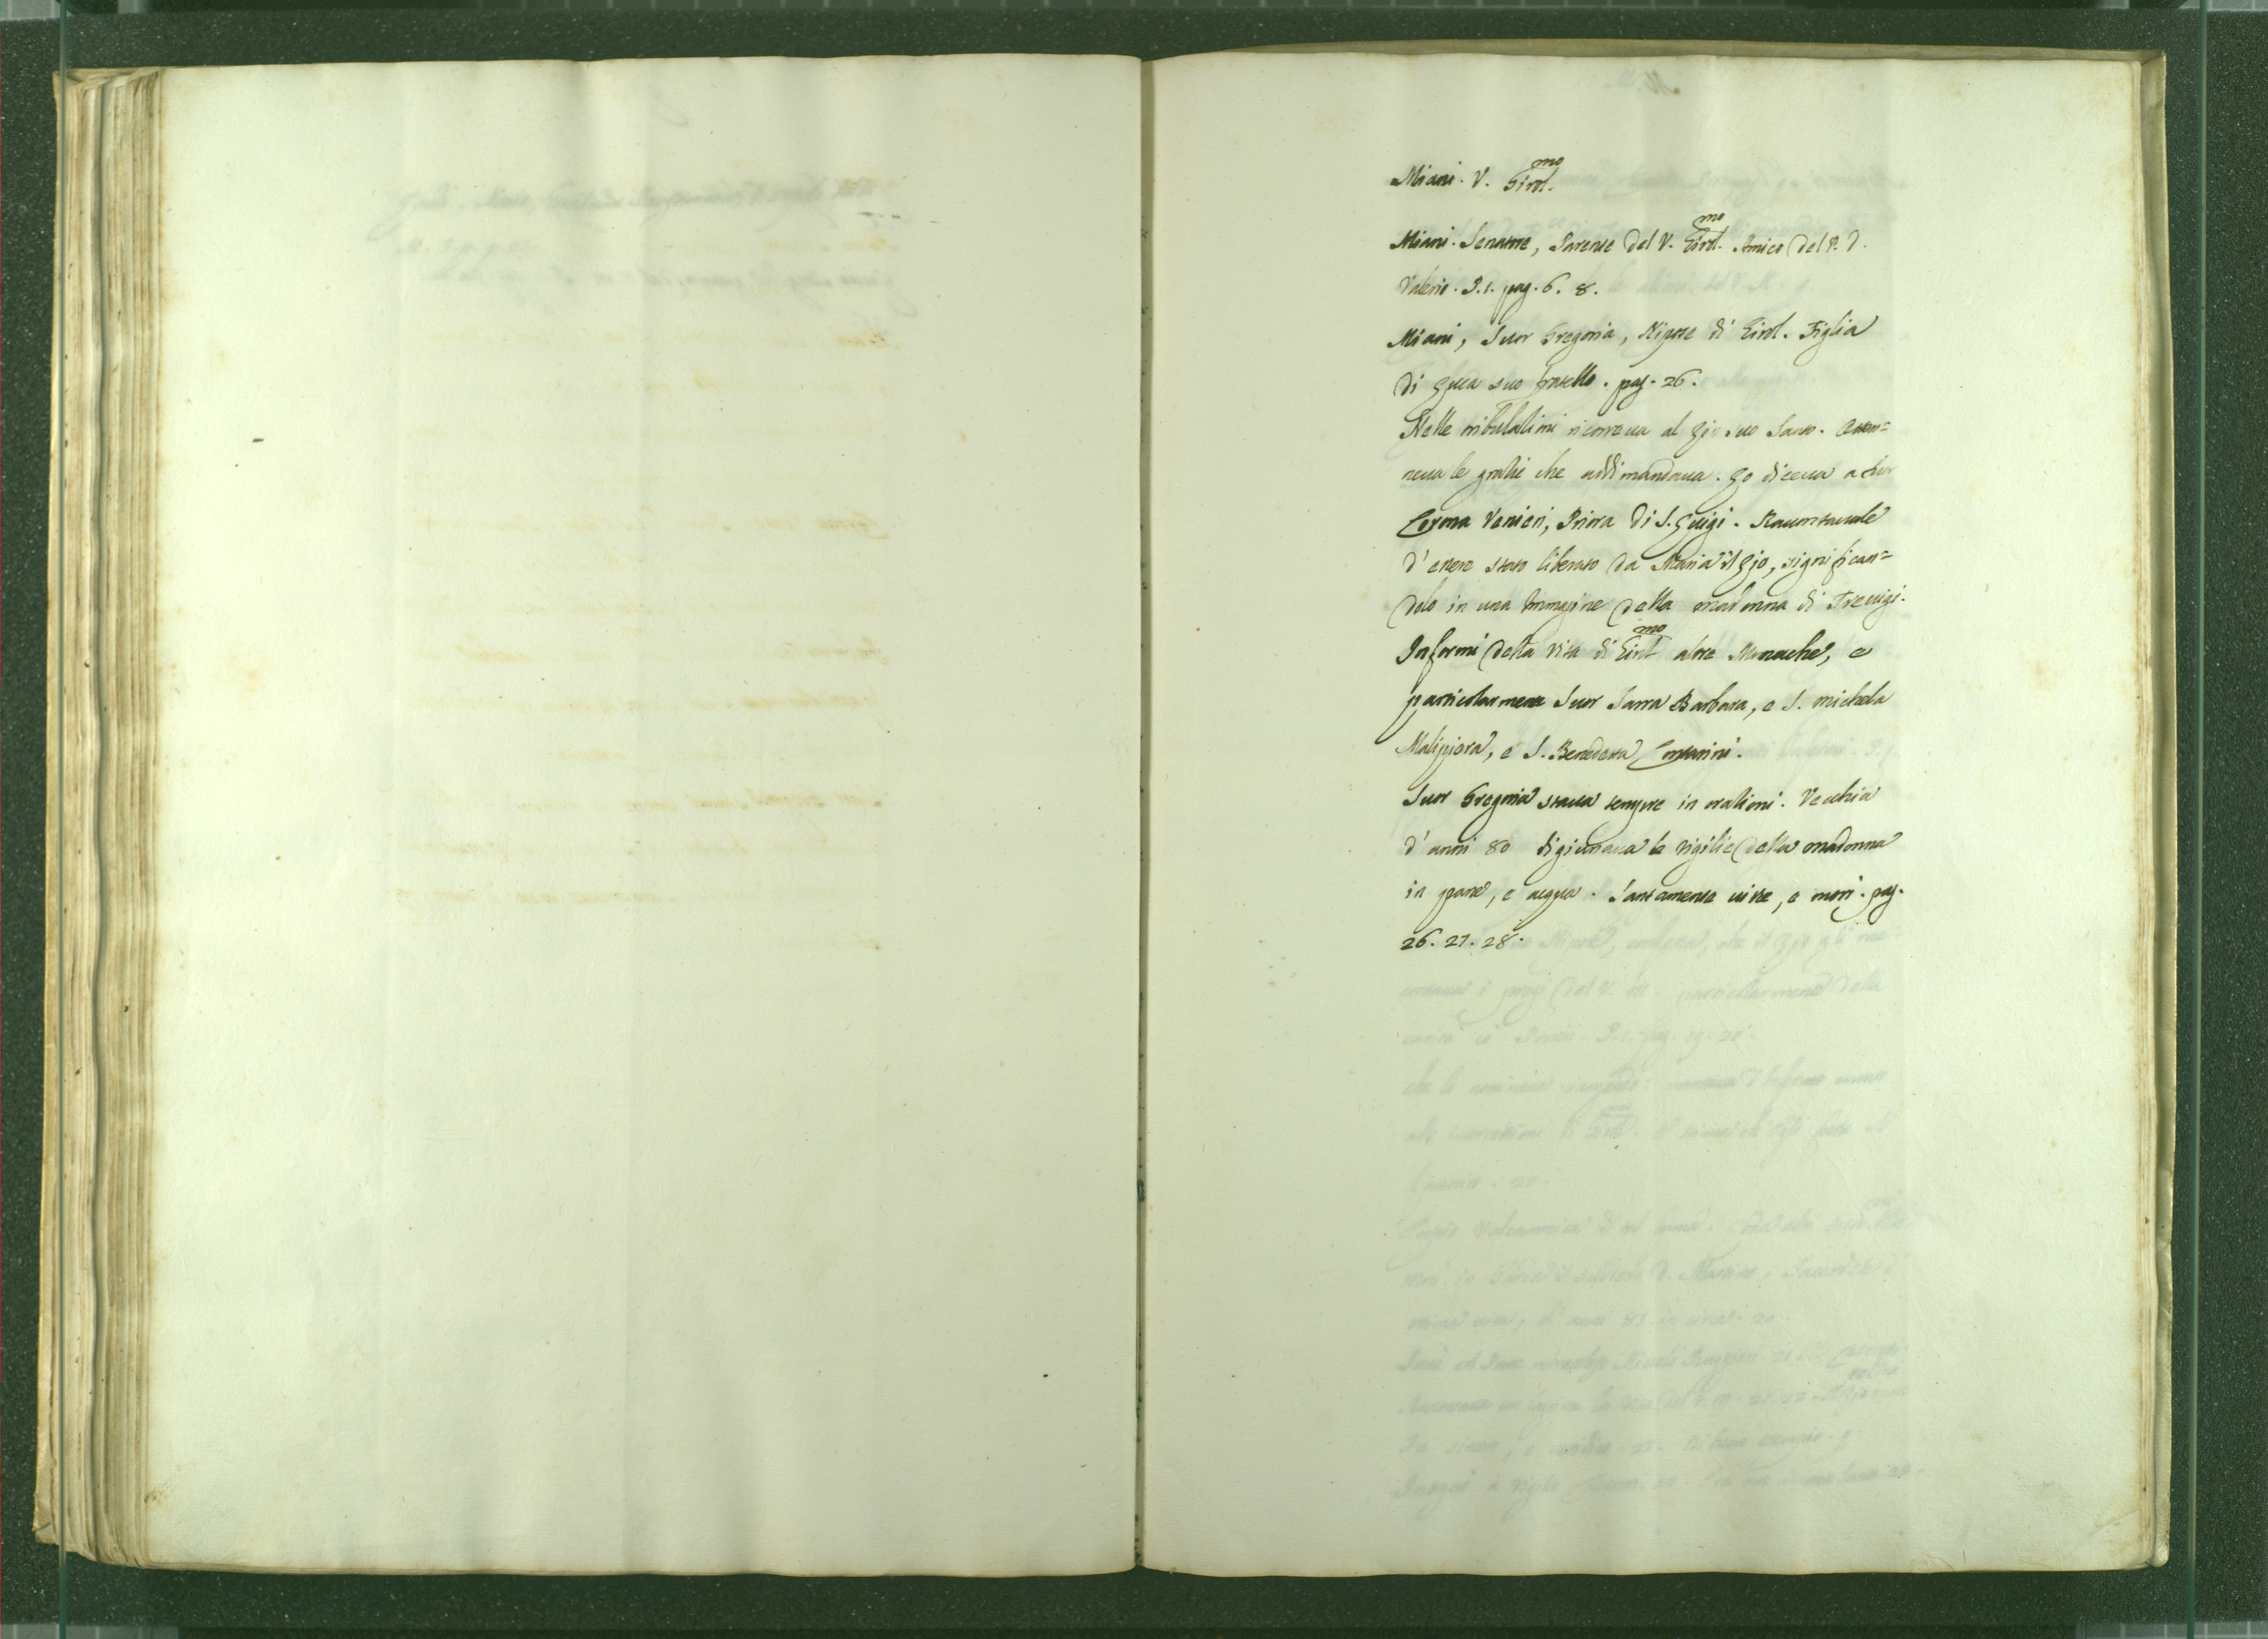 Miani. V. Girol.mo
Miani. Senatore, Parente del V. Girol.mo Amico del P. D.
Valerio. P. 1. pag. 6. 8.
Miani, Suor Gregoria, Nipote di Girol. Figlia
di Luca suo fratello. pag. 26.
Nelle tribulationi ricorreua al Zio suo Santo. Otten=
neua le gratie che addimandaua. Lo diceua a Suor
Corona Venieri, Priora di S. Luigi. Raccontauale
d'essere stato liberato da Maria il Zio, significan=
dolo in una Immagine della madonna di Treuigi.
Informò della vita di Girol.mo altre Monache, e
particolarmente Suor Sarra Barbara, e S. Michela
Malipiera, e S. Benedetta Contarini.
Suor Gregoria staua sempre in orationi. Vecchia
d'anni 80 digiunaua le vigilie della madonna
in pane, e acqua. Santamente uisse, e morì. pag.
26. 27. 28.